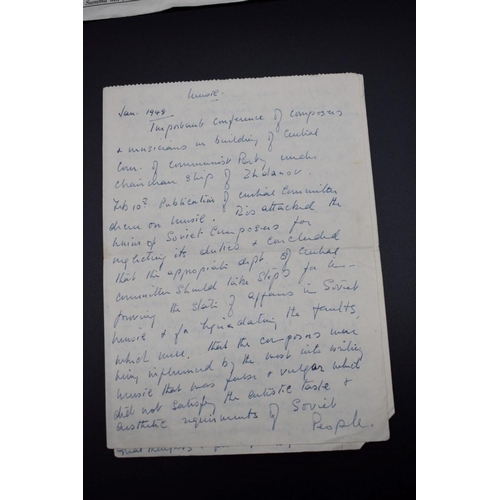 Music.
Jan. 1948
Important conference of composers
& musicians in building of Central
Com. of Communist Party under
chairmanship of Zhdanov.
Feb 10th Publication of Central Committee
decree on music. This attacked the
Union of Soviet Composers for
neglecting its duties & concluded
that the appropriate dept of Central
Committee should take steps for im-
proving the state of affairs in Soviet
music & for liquidating the faults,
which were. that the composers were
being influenced by the west into writing
music that was false & vulgar which
did not satisfy the artistic taste &
aesthetic requirements of Soviet
People.